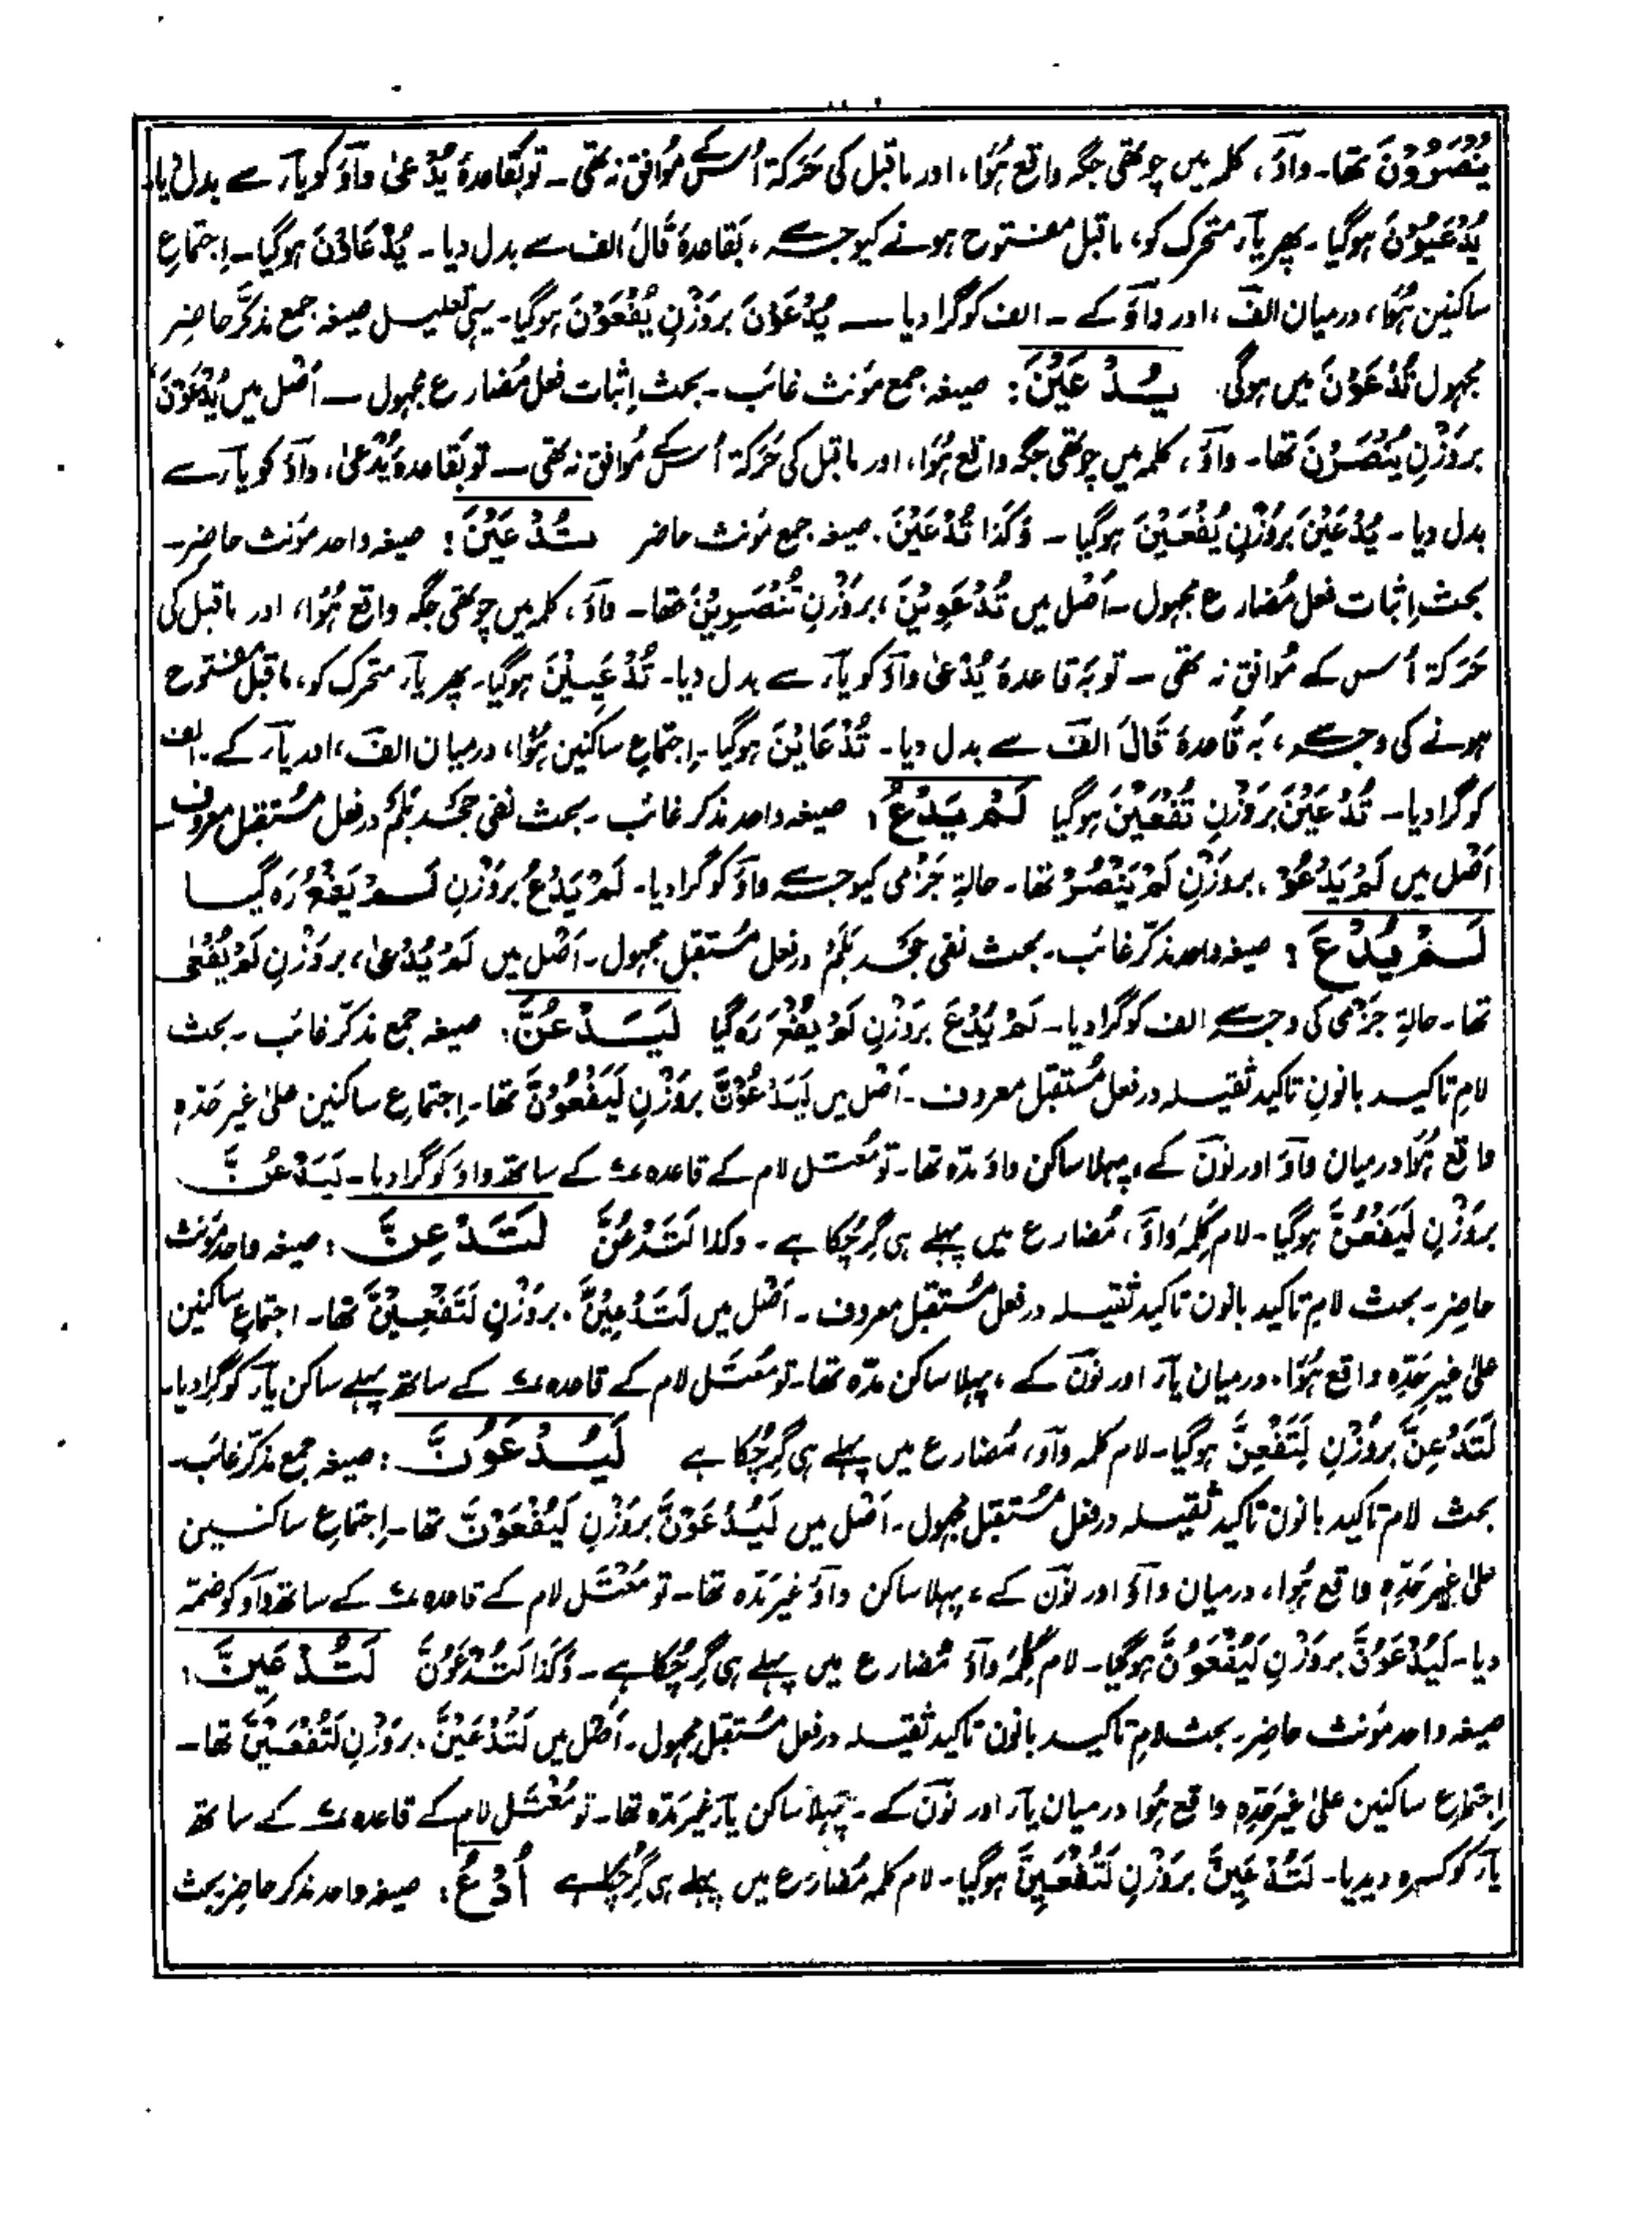 یُنْصَرُوْنَ تھا۔ واوٗ، کلمہ میں چوتھی جگہ واقع ہُوَا، اور ماقبل کی حَرَکۃ اُس کے مُوَافق نہ تھی ۔ تو بَقاعدۂ یُدْعٰی واوٗ کو یاؔر سے بدل دیا۔
یُدْعَیُوْنَ ہوگیا۔ پھر یاؔء متحرک کو، ماقبل مفتوح ہونے کیوجہ سے، بَقاعدۂ قَالَ الف سے بدل دیا۔ یُدْعَاوْنَ ہوگیا۔ اِجتماعِ
ساکنین ہُوَا، درمیان الفؔ، اور واوٗ کے ۔ الف کو گرا دیا ۔ یُدْعَوْنَ بروَزْنِ یُفْعَوْنَ ہوگیا۔ یہی تعلیل صیغہ جمع مذکّر حاضِر
مجہول تُدْعَوْنَ میں ہوگی. یُدْعَیْنَ: صیغہ جمع مؤنث غائب۔ بحث اِثبات فعل مُضارع مجہول ۔ اَصْل میں یُدْعَوْنَ
بروَزْنِ یُنْصَرْنَ تھا۔ واوٗ، کلمہ میں چوتھی جگہ واقع ہُوَا، اور ماقبل کی حَرَکۃ اُس کے مُوافق نہ تھی ۔ تو بَقاعدۂ یُدْعٰی، واوٗ کو یاؔء سے
بدل دیا ۔ یُدْعَیْنَ بروَزْنِ یُفْعَیْنَ ہوگیا ۔ وَکَذَا تُدْعَیْنَ. صیغہ جمع مؤنث حاضر تُدْعَیْنَ: صیغہ واحد مؤنث حاضِر۔
بحث اِثبات فعل مُضارع مجہول ۔ اَصْل میں تُدْعَوِیْنَ، بروَزْنِ تُنْصَرِیْنَ تھا۔ واوٗ، کلمہ میں چوتھی جگہ واقع ہُوَا، اور ماقبل کی
حَرَکۃ اُس کے مُوافق نہ تھی ۔ تو بَہ قاعدۂ یُدْعٰی واوٗ کو یاؔء سے بدل دیا۔ تُدْعَیِیْنَ ہوگیا۔ پھر یاؔء متحرک کو، ماقبل مفتوح
ہونے کی وجہ سے، بَہ قَاعدۂ قَالَ الفؔ سے بدل دیا۔ تُدْعَایْنَ ہوگیا۔ اِجتماعِ ساکنین ہُوَا، درمیان الفؔ، اور یاؔء کے ۔ الف
کو گرا دیا۔ تُدْعَیْنَ بروَزْنِ تُفْعَیْنَ ہوگیا لَمْ یَدْعُ: صیغہ واحد مذکر غائب ۔ بحث نفی جحد بَلَمْ در فعل مُستقبل معروف۔
اَصْل میں لَمْ یَدْعُوْ، بروَزْنِ لَمْ یَنْصُرْ تھا۔ حالۃِ جَزْمی کیوجہ سے واوٗ کو گرا دیا۔ لَمْ یَدْعُ بروَزْنِ لَمْ یَفْعُ رَہ گیا
لَمْ یُدْعَ: صیغہ واحد مذکّر غائب۔ بحث نفی جحد بَلَمْ در فعل مُستقبل مجہول۔ اَصْل میں لَمْ یُدْعٰی، بروَزْنِ لَمْ یُفْعٰی
تھا۔ حالۃِ جَزْمی کی وجہ سے الف کو گرا دیا۔ لَمْ یُدْعَ بروَزْنِ لَمْ یُفْعَ رَہ گیا لَیَدْعُنَّ: صیغہ جمع مذکّر غائب ۔ بحث
لامِ تاکید بانونِ تاکید ثقیلہ در فعل مُستقبل معروف ۔ اَصْل میں لَیَدْعُوْنَّ بروَزْنِ لَیَفْعُوْنَّ تھا۔ اِجتماعِ ساکنین علیٰ غیر حَدّہٖ
واقع ہُوَا درمیان واوٗ اور نوؔن کے، پہلا ساکن واوٗ مَدّہ تھا۔ تو مُعتَل لام کے قاعدہ کے ساتھ واوٗ کو گرا دیا۔ لَیَدْعُنَّ
بروَزْنِ لَیَفْعُنَّ ہوگیا۔ لام کلِمَہ واوٗ، مُضارع میں پہلے ہی گِر چُکا ہے ۔ وکذا لَتَدْعُنَّ لَتَدْعِنَّ: صیغہ واحد مؤنث
حاضِر ۔ بحث لامِ تاکید بانون تاکید ثقیلہ در فعل مُستقبل معروف ۔ اَصْل میں لَتَدْعِیْنَّ، بروَزْنِ لَتَفْعِیْنَّ تھا۔ اجتماعِ ساکنین
علیٰ غیرِ حَدّہٖ واقع ہُوَا، درمیان یاؔء اور نوؔن کے، پہلا ساکن مَدّہ تھا۔ تو مُعتَل لام کے قاعدہ کے ساتھ پہلے ساکن یاؔء کو گرا دیا۔
لَتَدْعِنَّ بروَزْنِ لَتَفْعِنَّ ہوگیا۔ لام کلمہ واوٗ، مُضارع میں پہلے ہی گِر چُکا ہے لَیُدْعَوُنَّ: صیغہ جمع مذکّر غائب۔
بحث لام تاکید بانون تاکید ثقیلہ در فعل مُستقبل مجہول ۔ اَصْل میں لَیُدْعَوْنَّ بروَزْنِ لَیُفْعَوْنَّ تھا۔ اِجتماعِ ساکنین
علیٰ غیرِ حَدّہٖ واقع ہُوَا، درمیان واوٗ اور نوؔن کے، پہلا ساکن واوٗ غیر مَدّہ تھا۔ تو مُعْتَل لام کے قاعدہ کے ساتھ واوٗ کو ضمّہ
دیا۔ لَیُدْعَوُنَّ بروَزْنِ لَیُفْعَوُنَّ ہوگیا۔ لام کلِمَہ واوٗ مُضارع میں پہلے ہی گِر چُکا ہے ۔ وَکَذَا لَتُدْعَوُنَّ لَتُدْعَیِنَّ:
صیغہ واحد مؤنث حاضِر ۔ بحث لامِ تاکید بانون تاکید ثقیلہ در فعل مُستقبل مجہول ۔ اَصْل میں لَتُدْعَیْنَّ، بروَزْنِ لَتُفْعَیْنَّ تھا۔
اِجتماع ساکنین علیٰ غیرِ حَدّہٖ واقع ہُوَا درمیان یاؔء اور نوؔن کے ۔ پہلا ساکن یاؔء غیر مَدّہ تھا۔ تو مُعْتَل لام کے قاعدہ کے ساتھ
یاؔء کو کسرہ دیدیا۔ لَتُدْعَیِنَّ بروَزْنِ لَتُفْعَیِنَّ ہوگیا۔ لام کلمہ مُضارع میں پہلے ہی گِر چُکا ہے اُدْعُ: صیغہ واحد مذکر حاضِر بحث